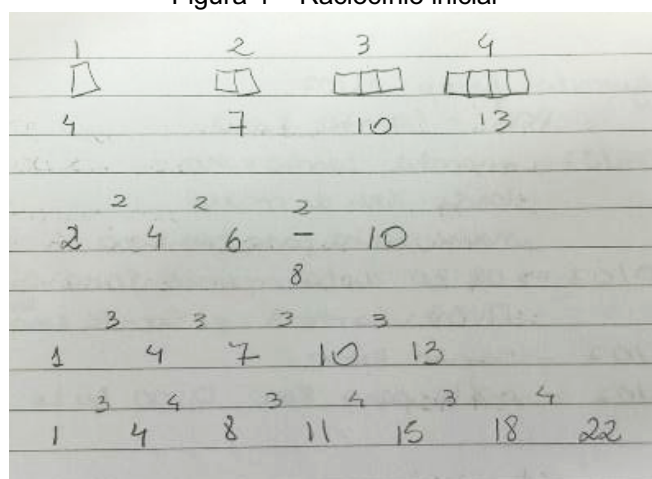 Figura 1 – Raciocínio inicial
1 2 3 4
4 7 10 13
2 2 2
2 4 6 – 10
8
3 3 3 3
1 4 7 10 13
3 4 3 4 3 4
1 4 8 11 15 18 22